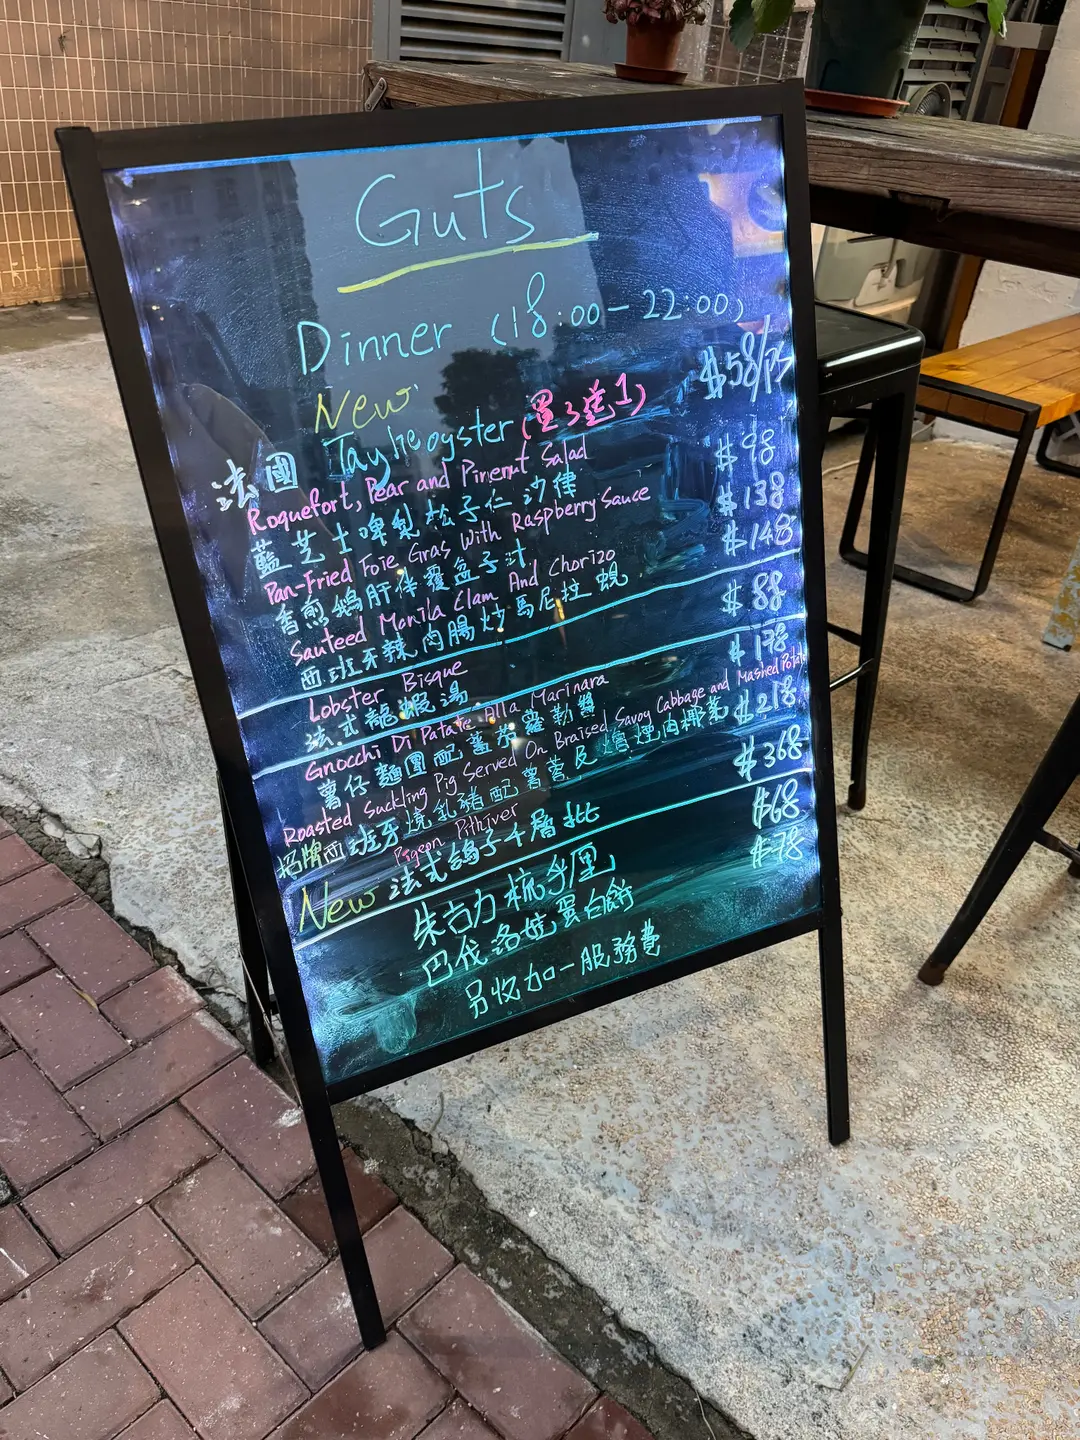 Guts
Dinner (18:00-22:00)
New
法國 Taylie oyster (買3送1) $58/Ps
Roquefort, Pear and Pinenut Salad $98
藍芝士啤梨松子仁沙律
Pan-Fried Foie Gras With Raspberry Sauce $138
香煎鵝肝伴覆盆子汁
Sauteed Manila Clam And Chorizo $148
西班牙辣肉腸炒馬尼拉蜆
Lobster Bisque $88
法式龍蝦湯
Gnocchi Di Patate Alla Marinara $178
薯仔麵團配蕃茄羅勒醬
Roasted Suckling Pig Served On Braised Savoy Cabbage and Mashed Potato $218
招牌西班牙燒乳豬配薯蓉及燴煙肉椰菜
Pigeon Pithiver $368
New 法式鴿子千層批
朱古力梳乎厘 $68
巴伐洛娃蛋白餅 $78
另收加一服務費